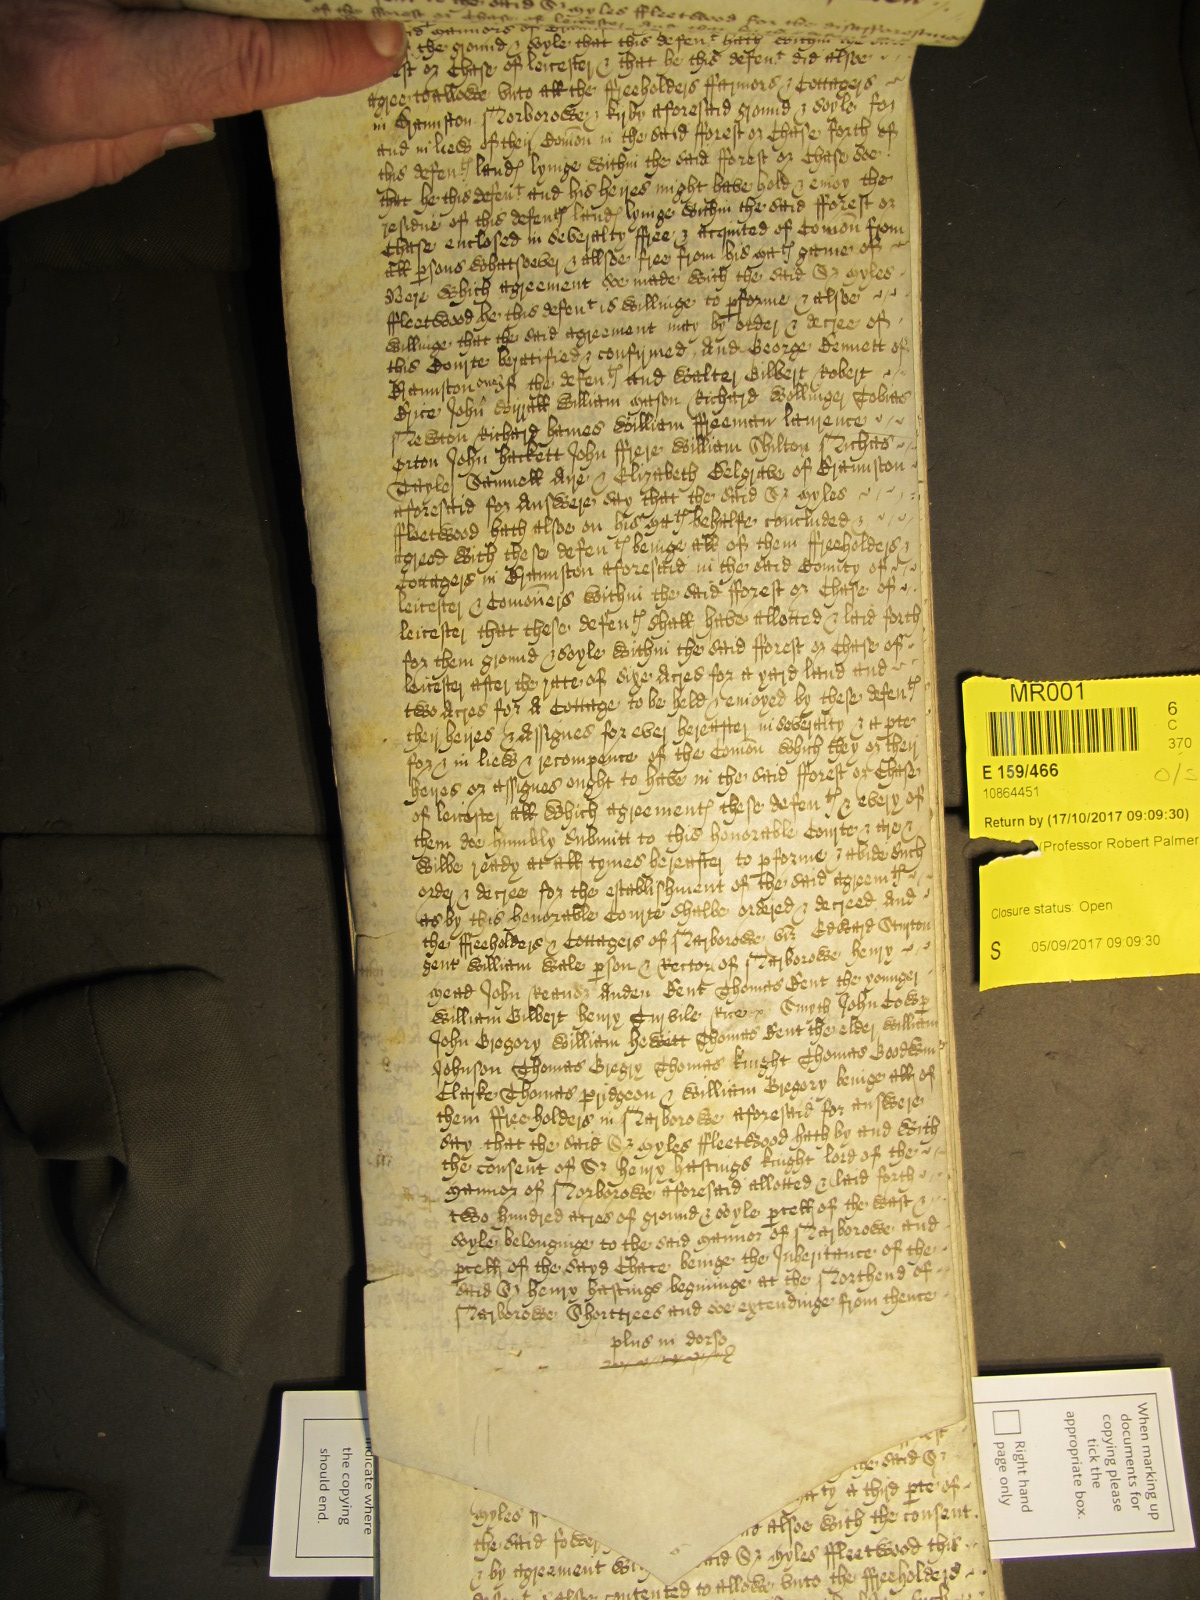 to the said Sr Myles ffleetwood for the disafforestinge
of the fforest or Chase of Leicester
and mannors of
the ground & soyle that this defent hath within the said
fforest or Chase of leicester & that he this defent did alsoe
agree to allowe unto all the ffreeholders ffarmors & Cottagers
in Branston Norborowe & Kirby aforesaid ground & soyle for
and in liew of their Comōn in the said fforest or Chase forth of
this defents lands lyinge within the said fforest or Chase soe
that he this defent and his heires might have hold & enioy the
residue of this defents lands lyinge within the said fforest or
Chase enclosed in severalty ffree & acquited of Comōn from
all psons whatsoever & allsoe free from his mats game of
Deere which agreement soe made with the said Sr Myles
ffleetwood he this defent is willinge to pforme & alsoe
willinge that the said agreement may by order & decree of
this Courte be ratified & confirmed. And George Bennett of
Branston one of the defents and Walter Gilbert Robert
Brice John Worrall William Mason Richard Wollinger Tobias
Newton Richard James William ffreeman Laurence
Orton John Hackett John ffrere William Shilton Nichas
Tayler Samuell Aire & Elizabeth Belgrave of Branston
aforesaid for Answere say that the said Sr Myles
ffleetwood hath alsoe on his mats behalfe concluded &
agreed with these defents beinge all of them ffreeholders &
Cottagers in Branston aforesaid in the said County of
leicester & Comōners within the said fforest or Chase of
leicester that these defents shall have allotted & laid forth
for them ground & soyle within the said fforest or Chase of
leicester after the rate of sixe Acres for a yard land and
two Acres for A Cottage to be held & enioyed by these defents
their heires & Assignes for ever hereafter in severalty & a pte
for & in liew & recompence of the Comōn which they or their
heires or assignes ought to have in the said fforest or Chase
of leicester all which agreements these defents & every of
them doe humbly submitt to this honorable Courte & are &
wilbe ready at all tymes hereafter to pforme & abide such
order & decree for the establishment of the said agreemts
as by this honorable Courte shalbe ordered & decreed And
the ffreeholders & Cottagers of Narborowe vizt Edward Stanton
gent William Wale pson & Rector of Narborowe Henry
Mead John Reander Anden Dent Thomas Dent the younger
William Gilbert Henry Turvile Rice Smyth John Cowp
John Gregory William Hewett Thomas Dent the elder William
Johnson Thomas Gregry Thomas Knight Thomas Goodwin
Clarke Thomas pridgeon & William Gregory beinge all of
them ffreeholders in Narborowe aforesaid for answere
say that the said Sr Myles ffleetwood hath by and with
the consent of Sr Henry Hastings knight lord of the
Mannor of Norborowe aforesaid allotted & laid forth
two hundred acres of ground & soyle pcell of the wast &
soyle belonginge to the said mannor of Narborowe and
pcell of the sayd Chace beinge the Inheritance of the
said Sr Henry Hastings beginninge at the Northend of
Narborowe Shorttrees and soe extendinge from thence
plus in dorso
the said Sr
a third pte of
Myles
alsoe with the consent
the said
said Sr Myles ffleetwood this
& by agreement
contented to allowe unto the ffreeholders
MR001
6
C
370
E 159/466
10864451
Return by (17/10/2017 09:09:30)
(Professor Robert Palmer
Closure status: Open
S 05/09/2017 09:09:30
indicate where
the copying
should end.
When marking up
documents for
copying please
tick the
appropriate box.
Right hand
page only